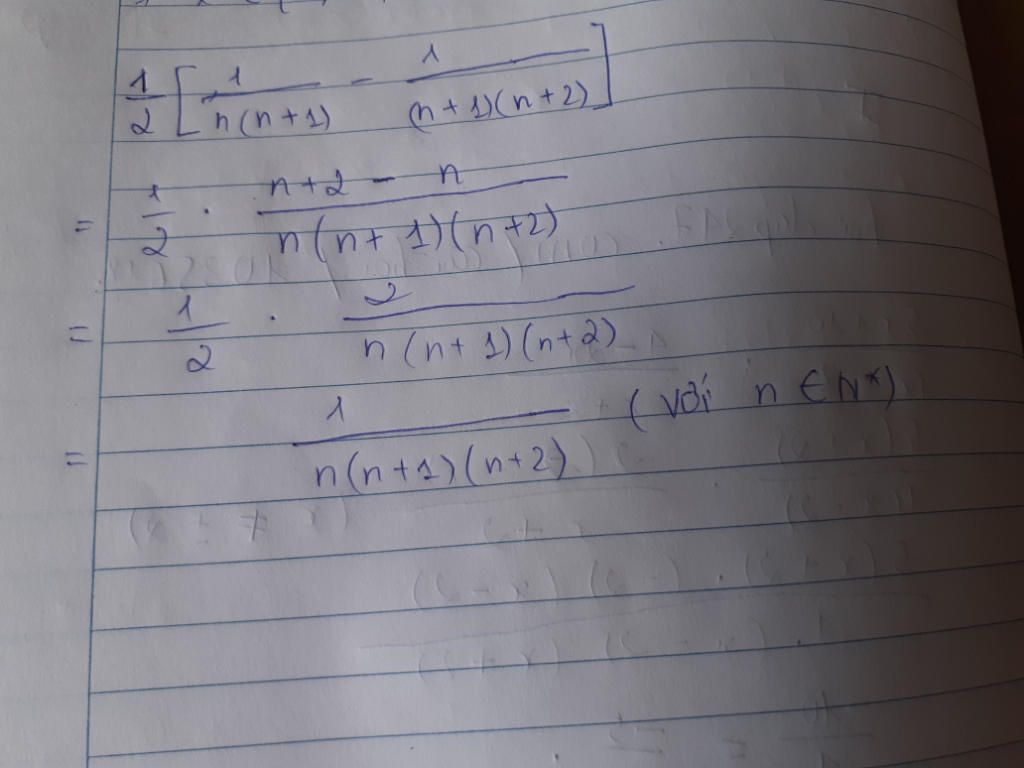 1/2 [ 1/n(n+1) - 1/(n+1)(n+2) ]
= 1/2 . n+2 - n/n(n+1)(n+2)
= 1/2 . 2/n(n+1)(n+2)
= 1/n(n+1)(n+2) (với n ∈ N*)